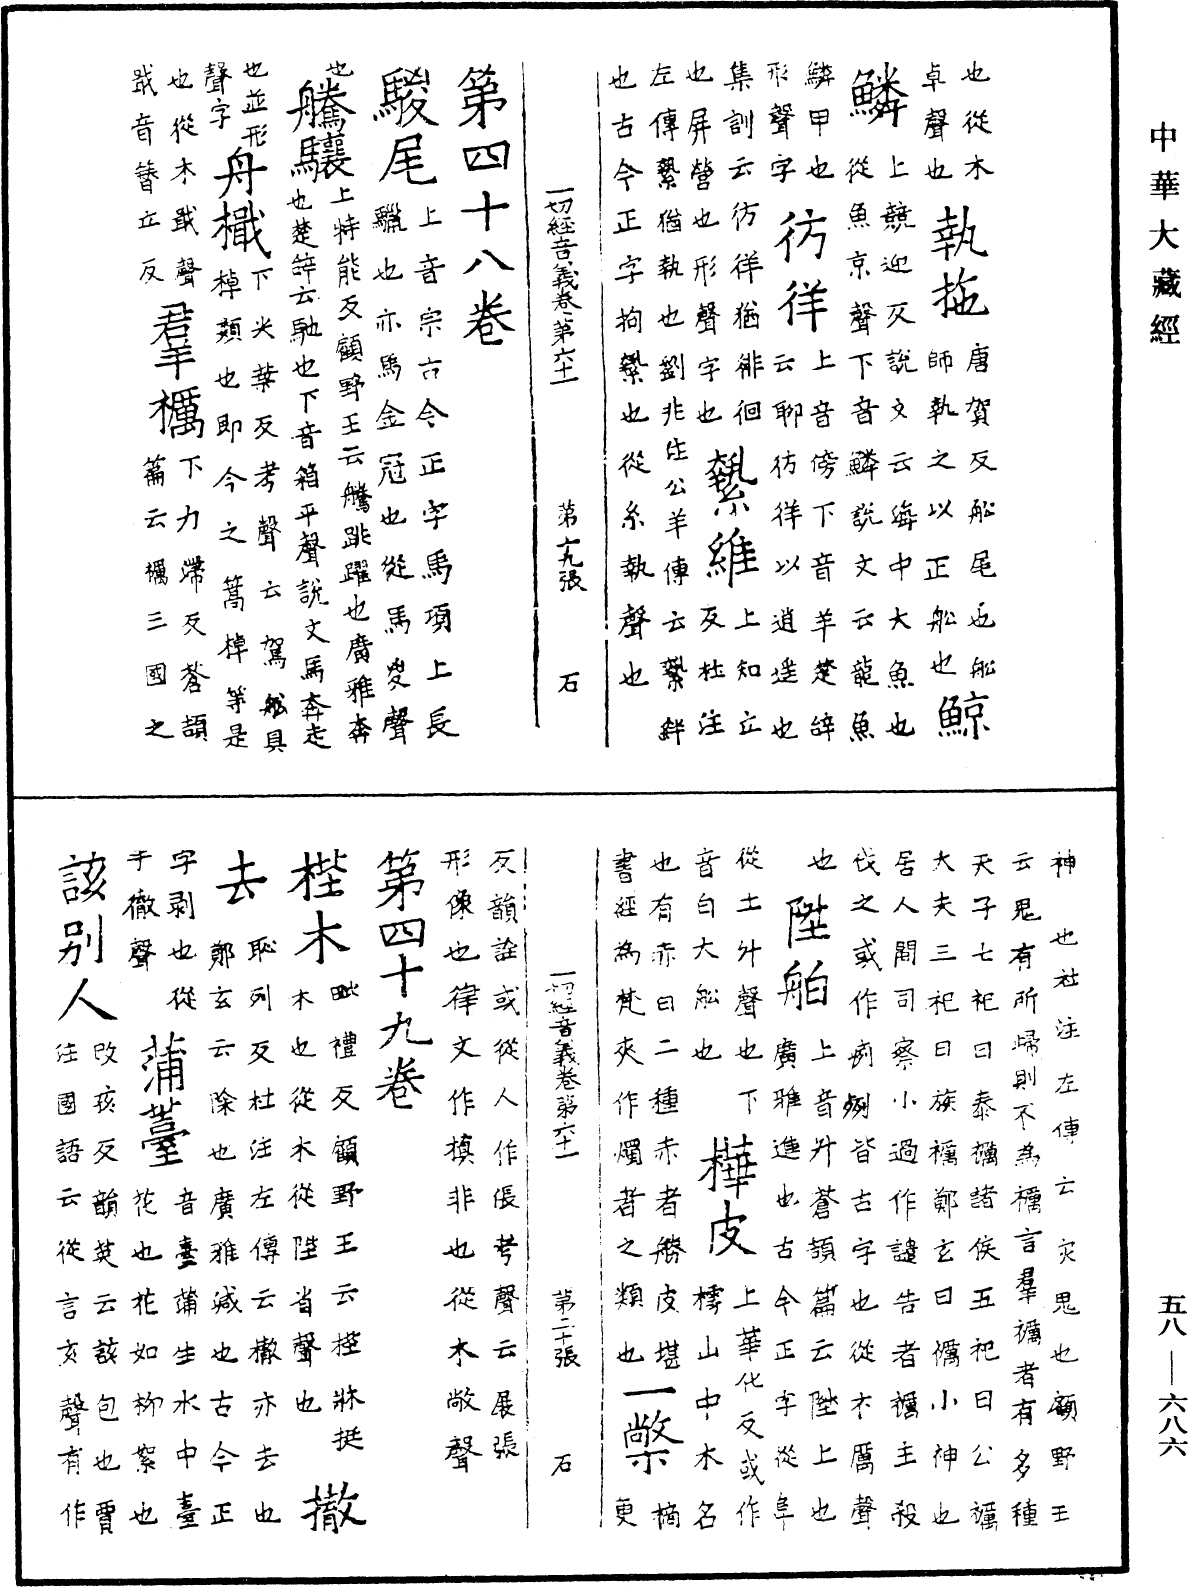 中華大藏經
也從木
卓聲也
執拖
唐賀反舩尾也舩
師執之以正舩也
鯨
鱗
上競迎反說文云海中大魚也
從魚京聲下音鱗說文云龍魚
鱗甲也
形聲字
彷徉
上音傍下音羊楚辝
云聊彷徉以逍遥也
集訓云彷徉猶徘徊
也屏營也形聲字也
縶維
上知立
反杜注
左傳縶猶執也劉兆注公羊傳云縶絆
也古今正字拘縶也從糸執聲也
一切經音義卷第六十一
第十九張
石
第四十八卷
騣尾
上音宗古今正字馬項上長
驖也亦馬金冠也從馬㚇聲
也
騰驤
上特能反顧野王云騰跳躍也廣雅奔
也楚辝云馳也下音箱平聲說文馬奔走
也並形
聲字
舟檝
下尖葉反考聲云駕舩具
棹類也即今之篙棹等是
也從木戢聲
戢音簪立反
羣禲
下力滯反蒼頡
篇云禲三國之
神也社注左傳云灾鬼也顧野王
云鬼有所歸則不為禲言羣禲者有多種
天子七祀曰泰禲諸侯五祀曰公禲
大夫三祀曰族禲鄭玄曰禲小神也
居人間司察小過作譴告者禲主殺
伐之或作皆古字也從不厲聲
也
陞舶
上音升蒼頡篇云陞上也
廣雅進也古今正字從阜
從土升聲也下
音白大舩也
樺皮
上華化反或作
樗山中木名
也有赤白二種赤者勝皮堪
一檠
摘
書經為梵夾作燭者之類也
更
一切經音義卷第六十一
第二十張
石
反韻詮或從人作張考聲云展張
形像也律文作槙非也從木敞聲
第四十九卷
梐木
毗禮反顧野王云梐牀挺
木也從木從陛省聲也
撤
去
恥列反杜注左傳云撤亦去也
鄭玄云除也廣雅減也古今正
字剥也從
手徹聲
蒲薹
音臺蒲生水中臺
花也花如柳絮也
該別人
改孩反韻英云該包也賈
注國語云從言亥聲有作
五八—六八六